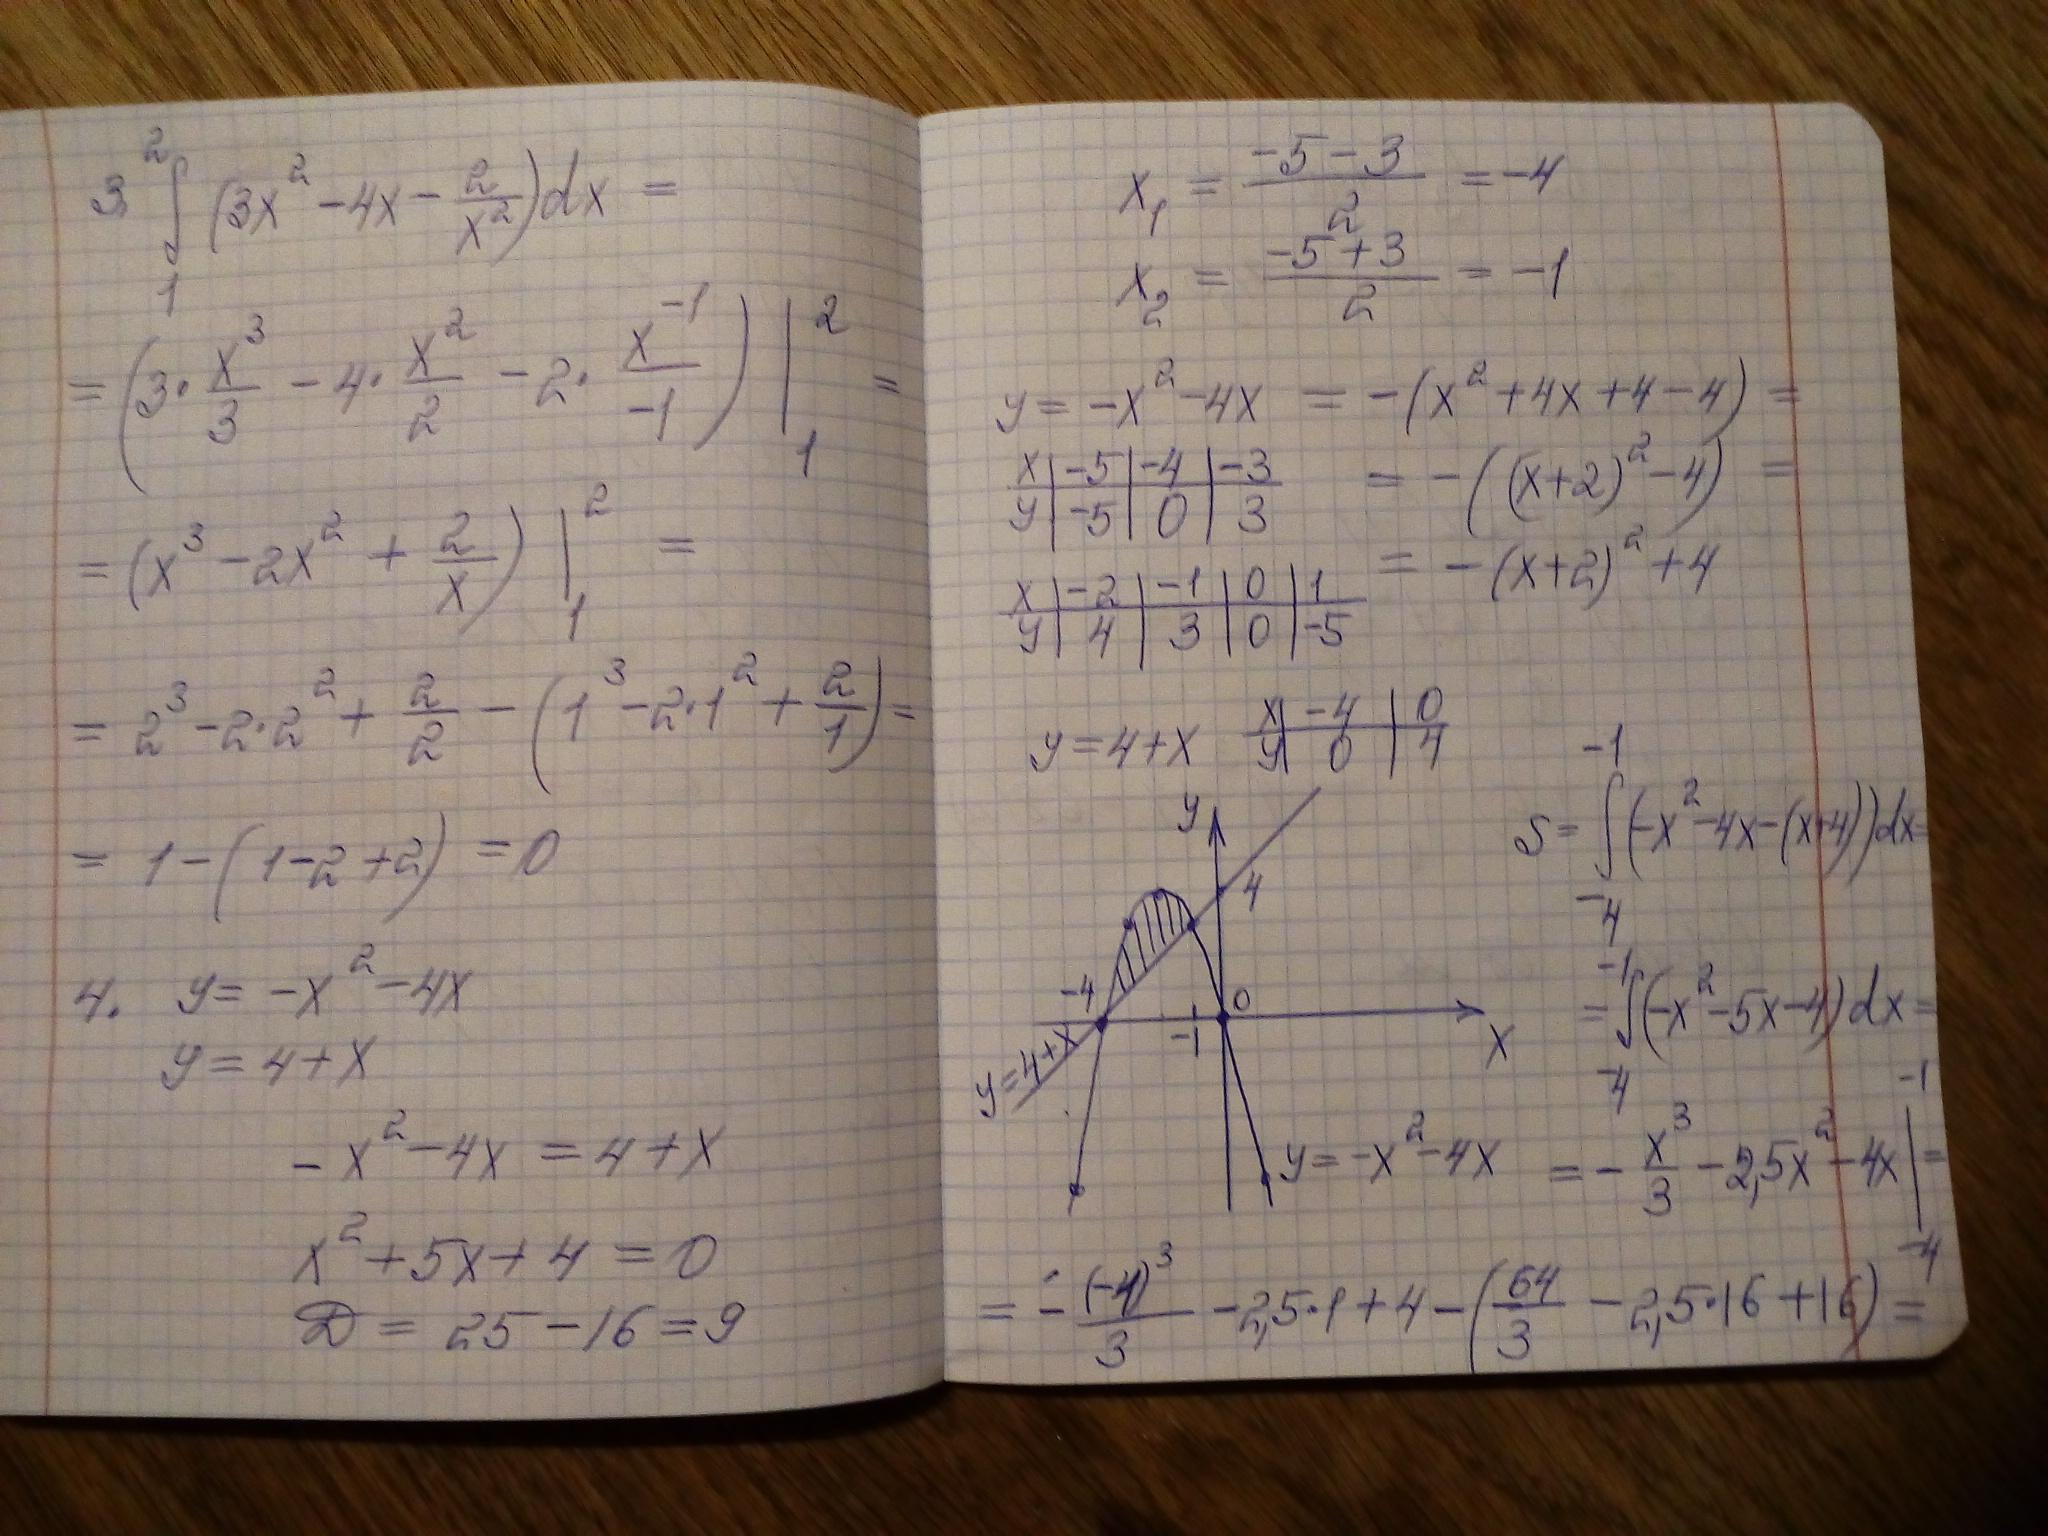 3. ∫₁² (3x² - 4x - 2/x²)dx =
= (3 · x³/3 - 4 · x²/2 - 2 · x⁻¹/-1) |₁² =
= (x³ - 2x² + 2/x) |₁² =
= 2³ - 2·2² + 2/2 - (1³ - 2·1² + 2/1) =
= 1 - (1 - 2 + 2) = 0
4. y = -x² - 4x
y = 4 + x
-x² - 4x = 4 + x
x² + 5x + 4 = 0
D = 25 - 16 = 9
x₁ = (-5 - 3)/2 = -4
x₂ = (-5 + 3)/2 = -1
y = -x² - 4x = -(x² + 4x + 4 - 4) =
x | -5 | -4 | -3
y | -5 | 0 | 3
= -((x+2)² - 4) =
= -(x+2)² + 4
x | -2 | -1 | 0 | 1
y | 4 | 3 | 0 | -5
y = 4 + x
x | -4 | 0
y | 0 | 4
y
4
-4
0
-1
x
y = 4 + x
y = -x² - 4x
S = ∫₋₄⁻¹ (-x² - 4x - (x+4))dx =
= ∫₋₄⁻¹ (-x² - 5x - 4)dx =
= - x³/3 - 2,5x² - 4x |₋₄⁻¹ =
- 2,5·1 + 4 - (64/3 - 2,5·16 + 16) =